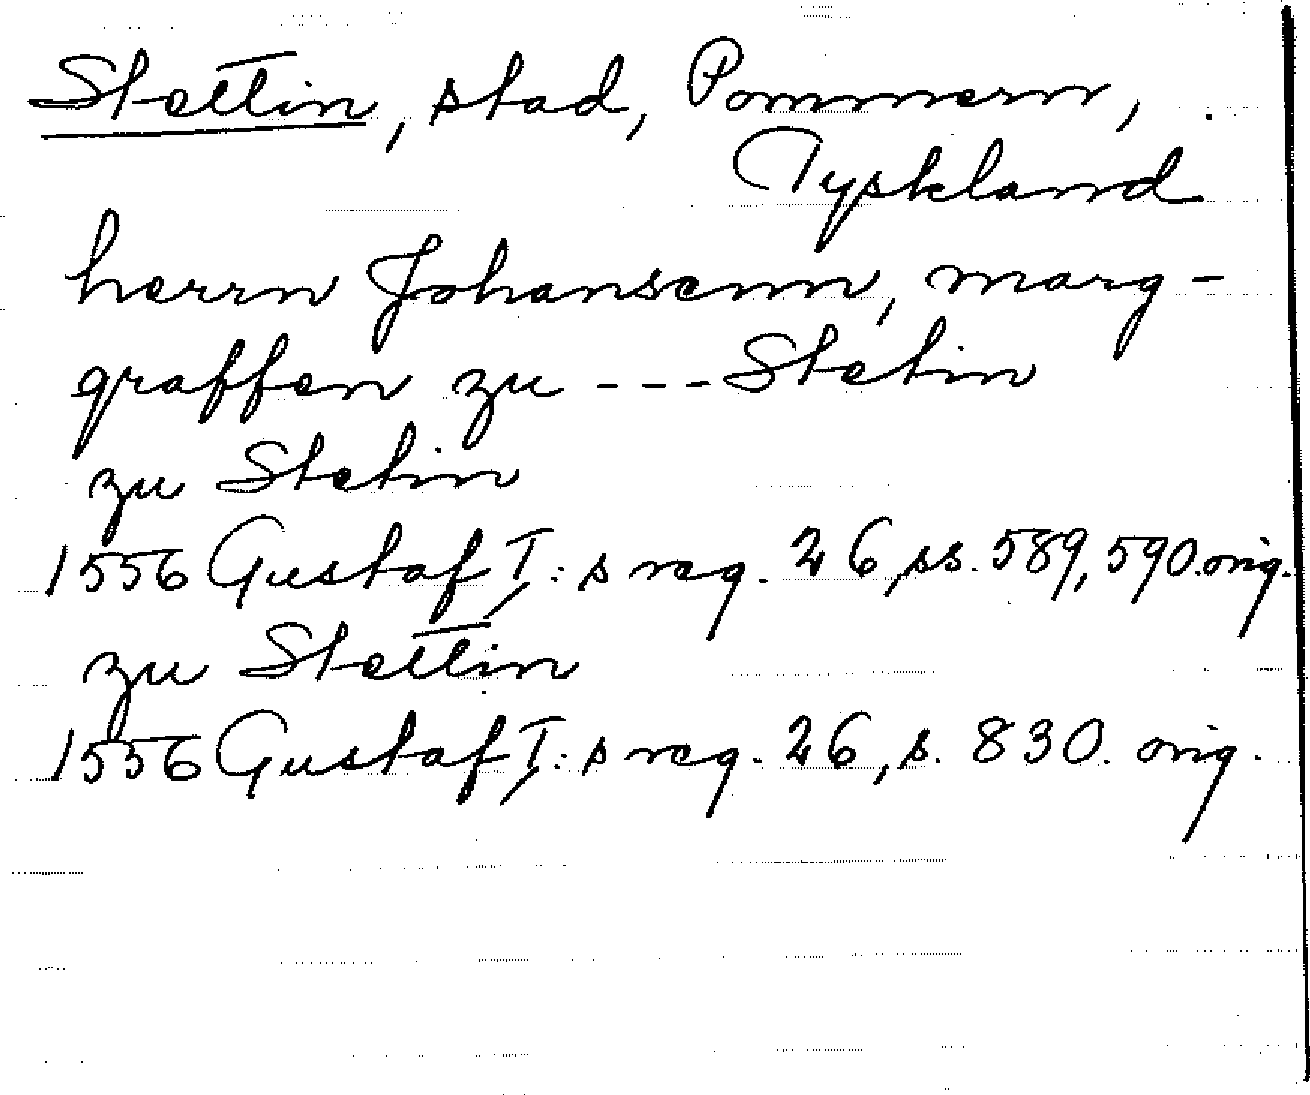 Stettin, stad, Pommern,
Tyskland
herrn Johansenn, marg-
graffen zu --- Stetin
zu Stetin
1556 Gustaf I:s reg. 26, ss. 589, 590. orig.
zu Stettin
1556 Gustaf I:s reg. 26, s. 830. orig.